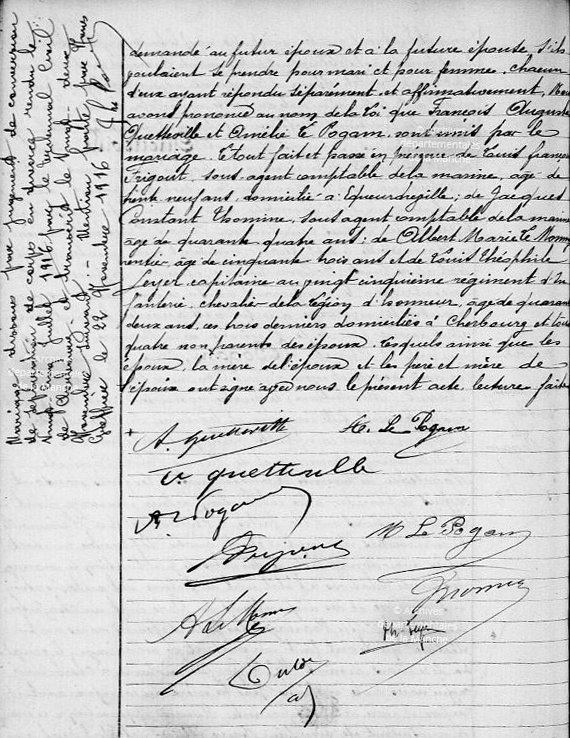 demandé au futur époux et à la future épouse, s'ils
voulaient se prendre pour mari et pour femme, chacun
d'eux ayant répondu séparément et affirmativement, Nous
avons prononcé au nom de la loi que François Auguste
Quetteville et Amélie Le Pogam, sont unis par le
mariage. Et tout fait et passé en présence de Louis françois
Frigout, sous agent comptable de la marine, âgé de
trente neuf ans, domicilié à Equeurdreville; de Jacques
Constant Thomine, sous agent comptable de la marine
âgé de quarante quatre ans; de Albert Marie Le Monn
rentier, âgé de cinquante trois ans et de Louis Théophile
Leyer, capitaine au vingt cinquième régiment d'In
fanterie, chevalier de la légion d'honneur, âgé de quarante
deux ans, ces trois derniers domiciliés à Cherbourg et tous
quatre non parents des époux. Lesquels ainsi que les
époux, la mère de l'époux et les père et mère de
l'épouse ont signé avec nous le présent acte, lecture faite
A. Quetteville
A. Le Pogam
Ve Quetteville
A. Le Pogam
M Le Pogam
Frigout
Thomine
Th. Leyer
Mariage dissous par jugement de conversion
de séparation de corps en divorce rendu le
juillet 1916 par le tribunal civil
de Cherbourg et transcrit le vingt deux
Novembre suivant. Mention faite par Nous
Greffier le 22 Novembre 1916